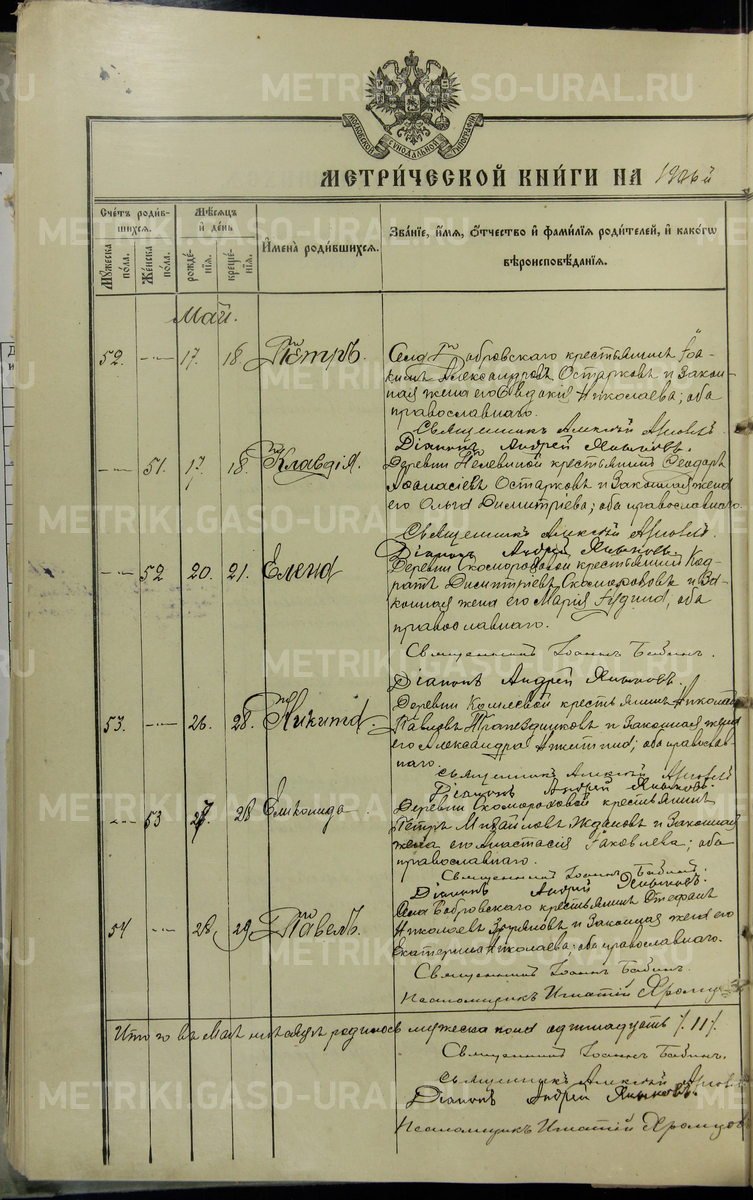 METRIKI.GASO-URAL.RU
МОСКОВСКОЙ СѴНОДАЛЬНОЙ ТИПОГРАФІИ
МЕТРИ́ЧЕСКОЙ КНИ́ГИ НА 1906й
Сче́тъ роди́в-
шихсѧ.
Мꙋ́жеска по́ла.
Же́нска по́ла.
Мѣ́сѧцъ
и҆ де́нь
рожде́-
нїѧ.
креще́-
нїѧ.
И҆мена̀ роди́вшихсѧ.
Зва́нїе, и҆́мѧ, ѻ҆́тчество и҆ фамѝлїѧ роди́телей, и҆ како́гѡ
вѣроисповѣ́данїѧ.
Май.
52. -- 17. 18. Петръ. Села Бобровскаго крестьянинъ Іоа-
кимъ Александровъ Остарковъ и Закон-
ная жена его Евдокія Николаева; оба
православнаго.
Священникъ Алексій
Діаконъ Андрей
-- 51. 17. 18. Клавдія. Деревни крестьянинъ Ѳеодоръ
Аѳанасіевъ Остарковъ и Законная жена
его Ольга Димитріева; оба православнаго.
Священникъ Алексій
Діаконъ Андрей
-- 52 20. 21. Елена Деревни Скомороховой крестьянинъ Код-
ратъ Димитріевъ и За-
конная жена его Марія, оба
православнаго.
Священникъ Іоаннъ Бабинъ.
Діаконъ Андрей
53. -- 26. 28. Никита. Деревни крестьянинъ Николай
Павловъ Трапезниковъ и Законная жена
его Александра Никитина; оба православ-
наго.
Священникъ Алексій
Діаконъ Андрей
-- 53 27 28 Еликонида Деревни Скомороховой крестьянинъ
Петръ Михайловъ Ждановъ и Законная
жена его Анастасія Іаковлева; оба
православнаго.
Священникъ Іоаннъ Бабинъ.
Діаконъ Андрей
54 -- 28. 29. Павелъ. Села Бобровскаго крестьянинъ Стефанъ
Николаевъ и Законная жена его
Екатерина Николаева; оба православнаго.
Священникъ Іоаннъ Бабинъ.
Псаломщикъ Игнатій
Итого въ маѣ мѣсяцѣ родилось мужеска пола одинадцать /.11/.
Священникъ Іоаннъ Бабинъ.
Священникъ Алексій
Діаконъ Андрей
Псаломщикъ Игнатій